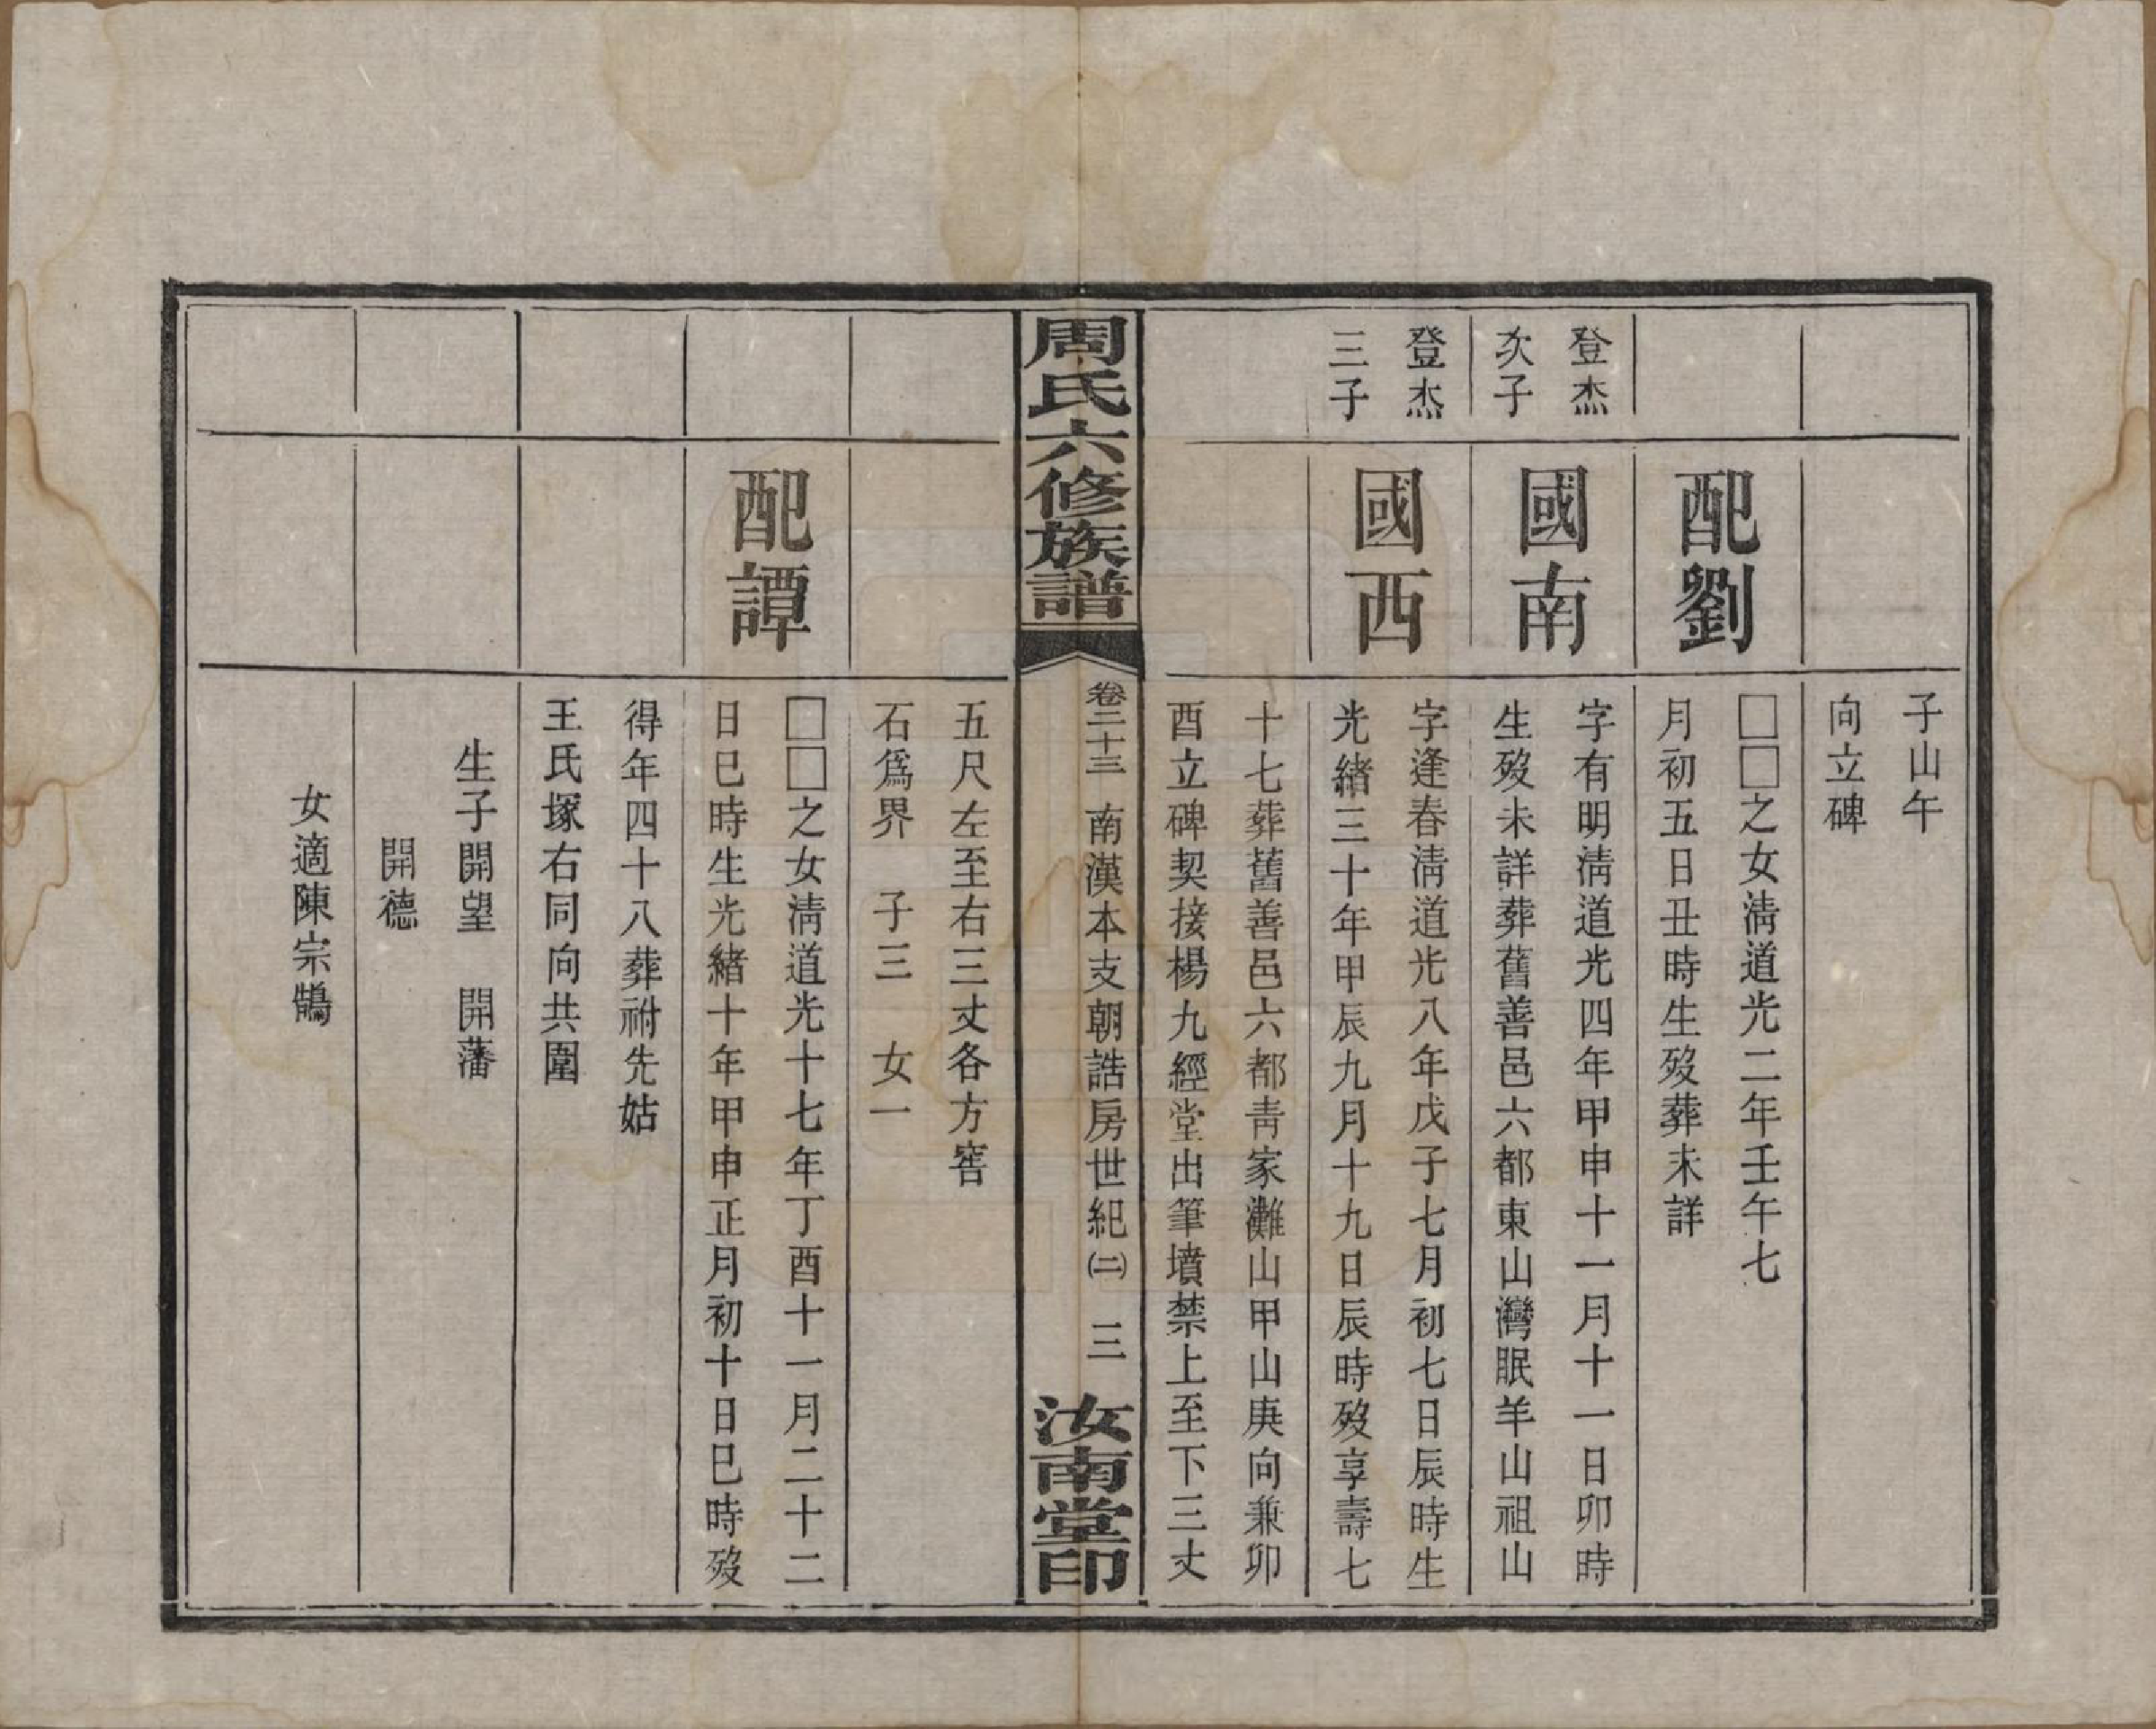 子山午
向立碑
配劉
□□之女淸道光二年壬午七
月初五日丑時生歿葬未詳
登杰
次子
國南
字有明淸道光四年甲申十一月十一日卯時
生歿未詳葬舊善邑六都東山灣眠羊山祖山
登杰
三子
國西
字逢春淸道光八年戊子七月初七日辰時生
光緒三十年甲辰九月十九日辰時歿享壽七
十七葬舊善邑六都靑家灘山甲山庚向兼卯
酉立碑契接楊九經堂出筆墳禁上至下三丈
周氏六修族譜
卷二十三 南漢本支朝誥房世紀㈡ 三
汝南堂印
五尺左至右三丈各方窖
石爲界 子三 女一
配譚
□□之女淸道光十七年丁酉十一月二十二
日巳時生光緒十年甲申正月初十日巳時歿
得年四十八葬祔先姑
王氏塚右同向共圍
生子開望 開藩
開德
女適陳宗鵠